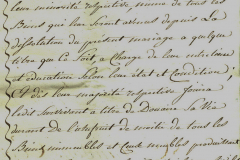 leur minorité respective, même de tous les
Biens qui leur seront advenus depuis La
dissolution du présent mariage a quelque
titre que ce soit, a Charge de leur nutrition
et éducation Selon leur état et Condition ;
Et dès leur majorité respective Jouira
ledit Survivant a titre de Douaire Sa Vie
durant de l'usufruit de moitié de tous les
Biens immeubles et